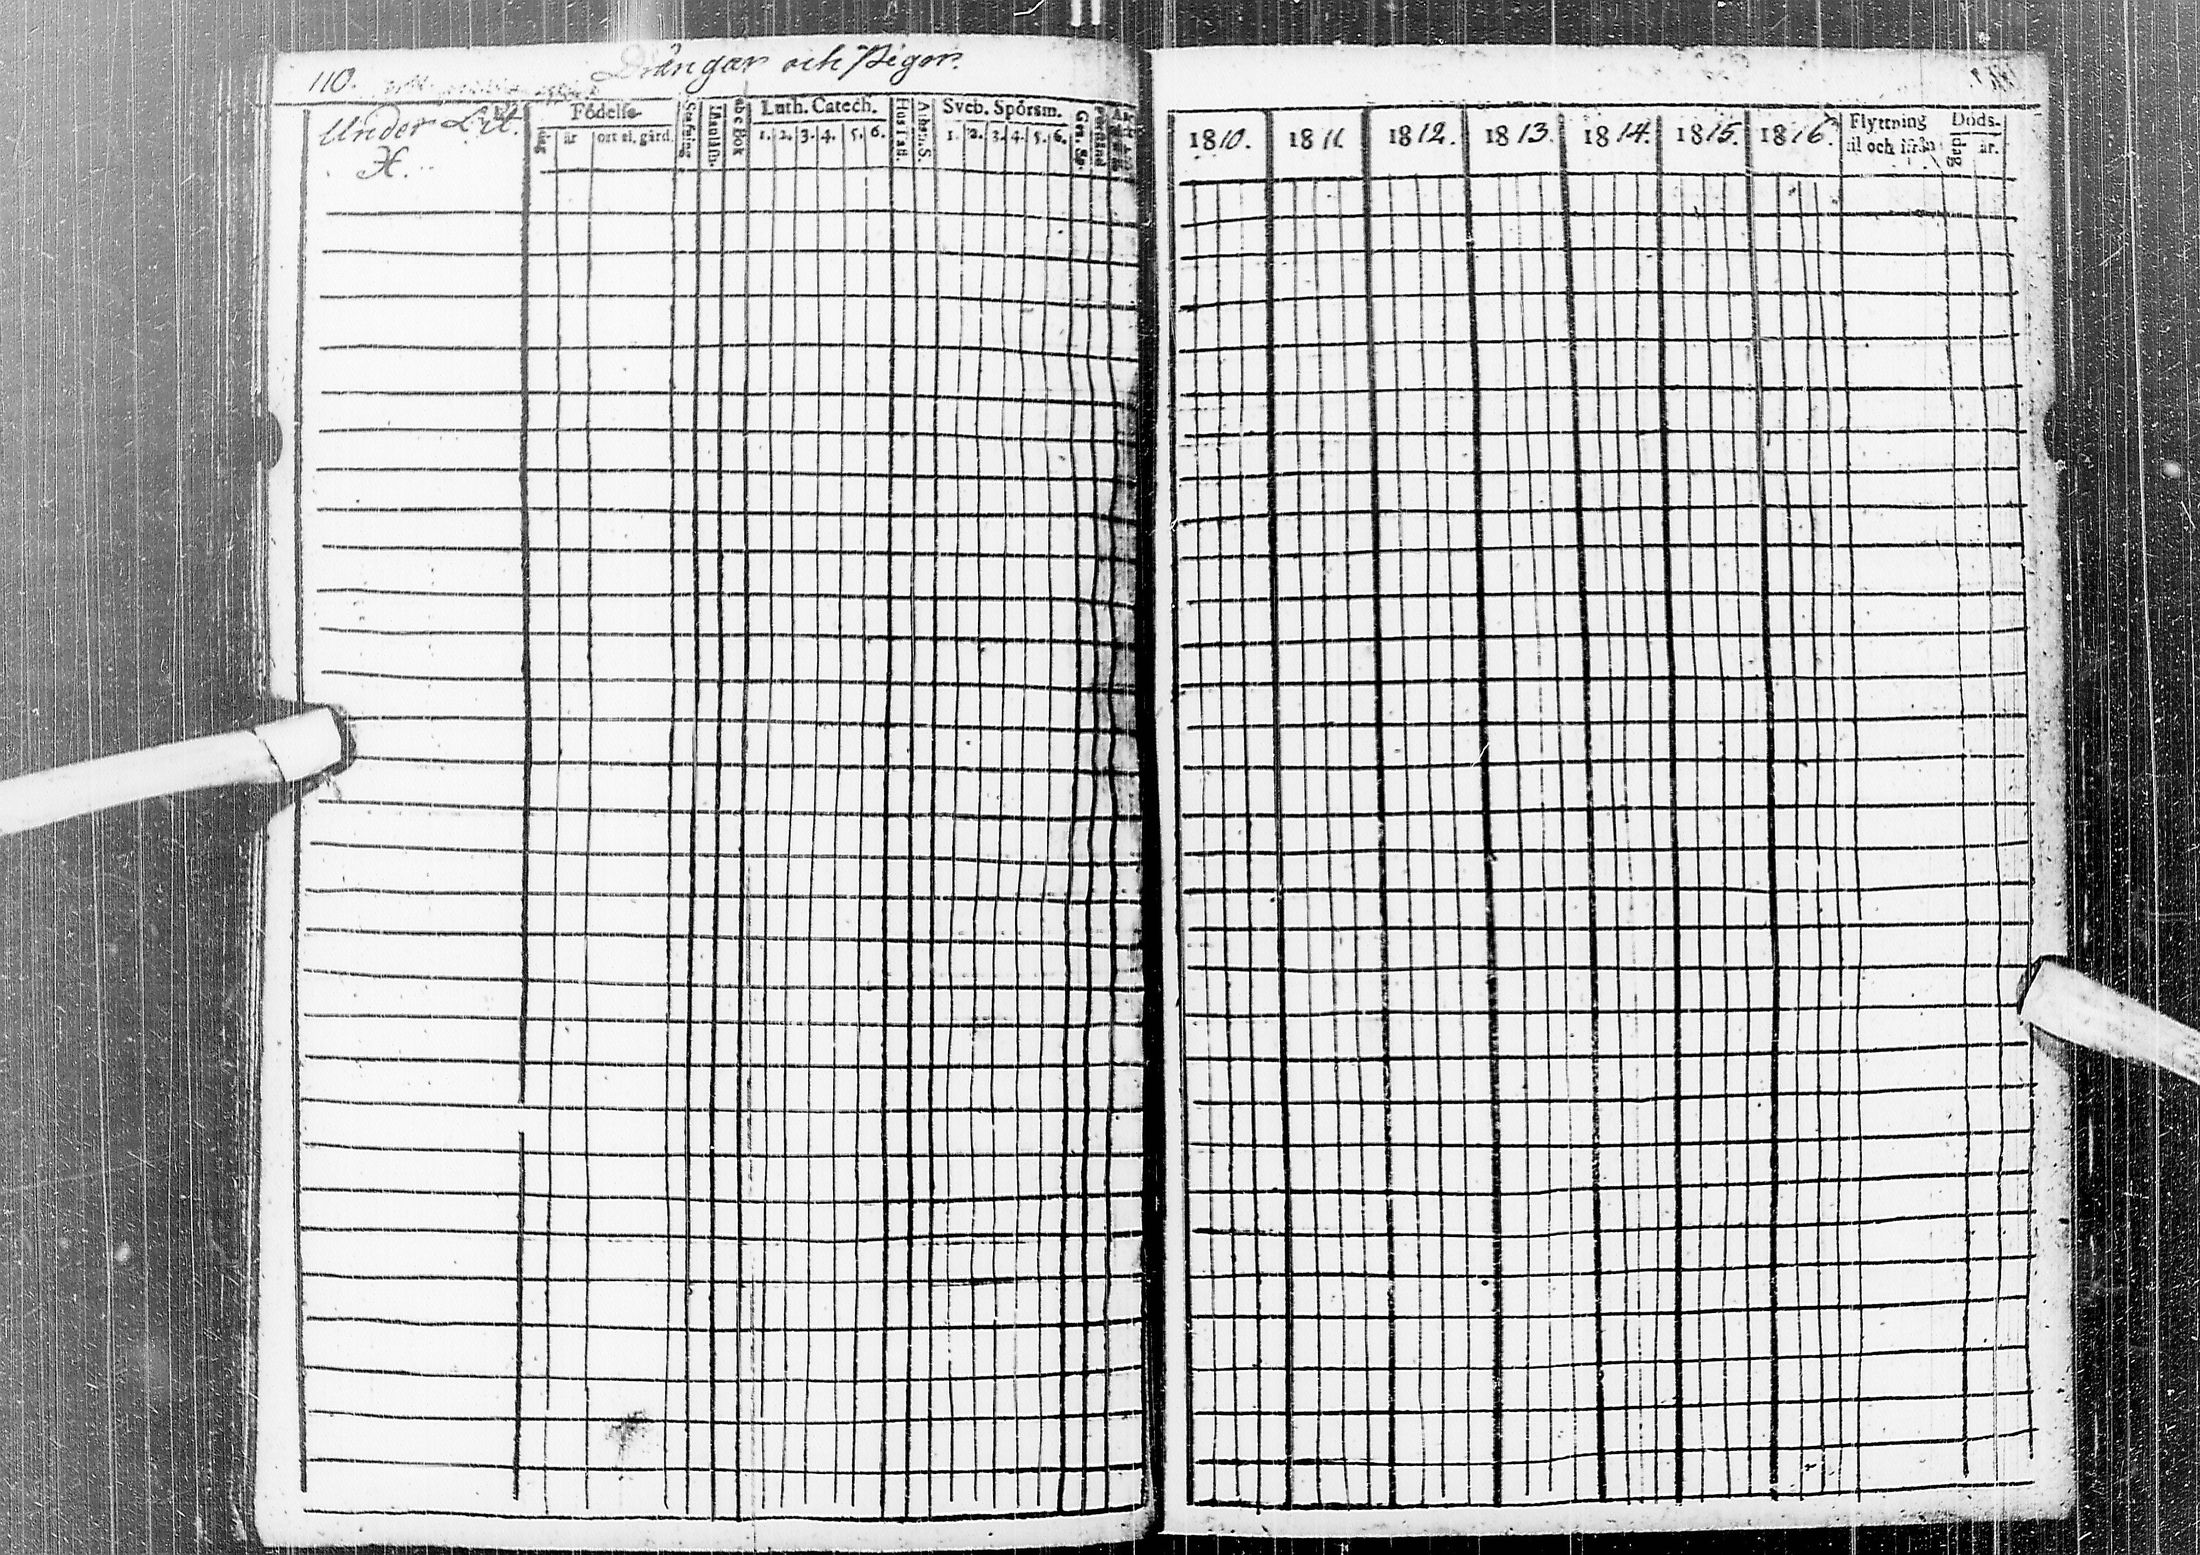 110.
Drängar och Pigor.
Under Litt.
H.
Födelse
dag år ort el. gård.
Stafning
Innanläsn.
ab c Bok
Luth. Catech.
1. 2. 3. 4. 5. 6.
Hus Tafl.
Athan. S.
Sveb. Spörsm.
1. 2. 3. 4. 5. 6.
Gra. Sp.
1810. 1811. 1812. 1813. 1814. 1815. 1816.
Flyttning
til och ifrån
Döds-
dag år.